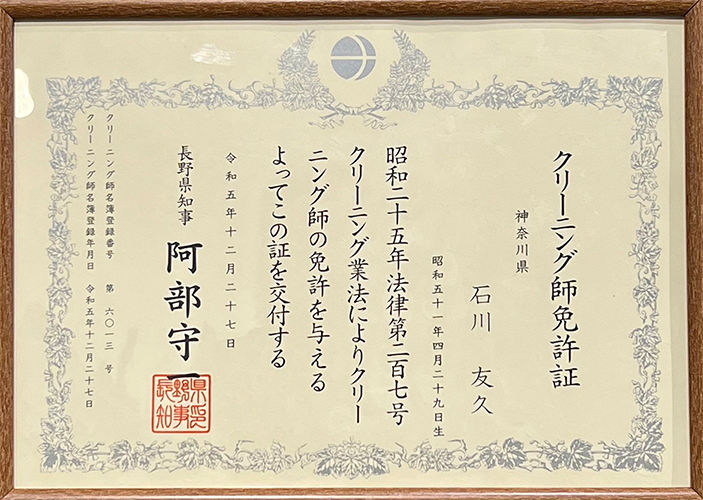 クリーニング師免許証
神奈川県
石川 友久
昭和五十一年四月二十九日生
昭和二十五年法律第二百七号
クリーニング業法によりクリー
ニング師の免許を与える
よってこの証を交付する
令和五年十二月二十七日
長野県知事 阿部守一
長野県知事印
クリーニング師名簿登録番号 第 六〇一三 号
クリーニング師名簿登録年月日 令和五年十二月二十七日